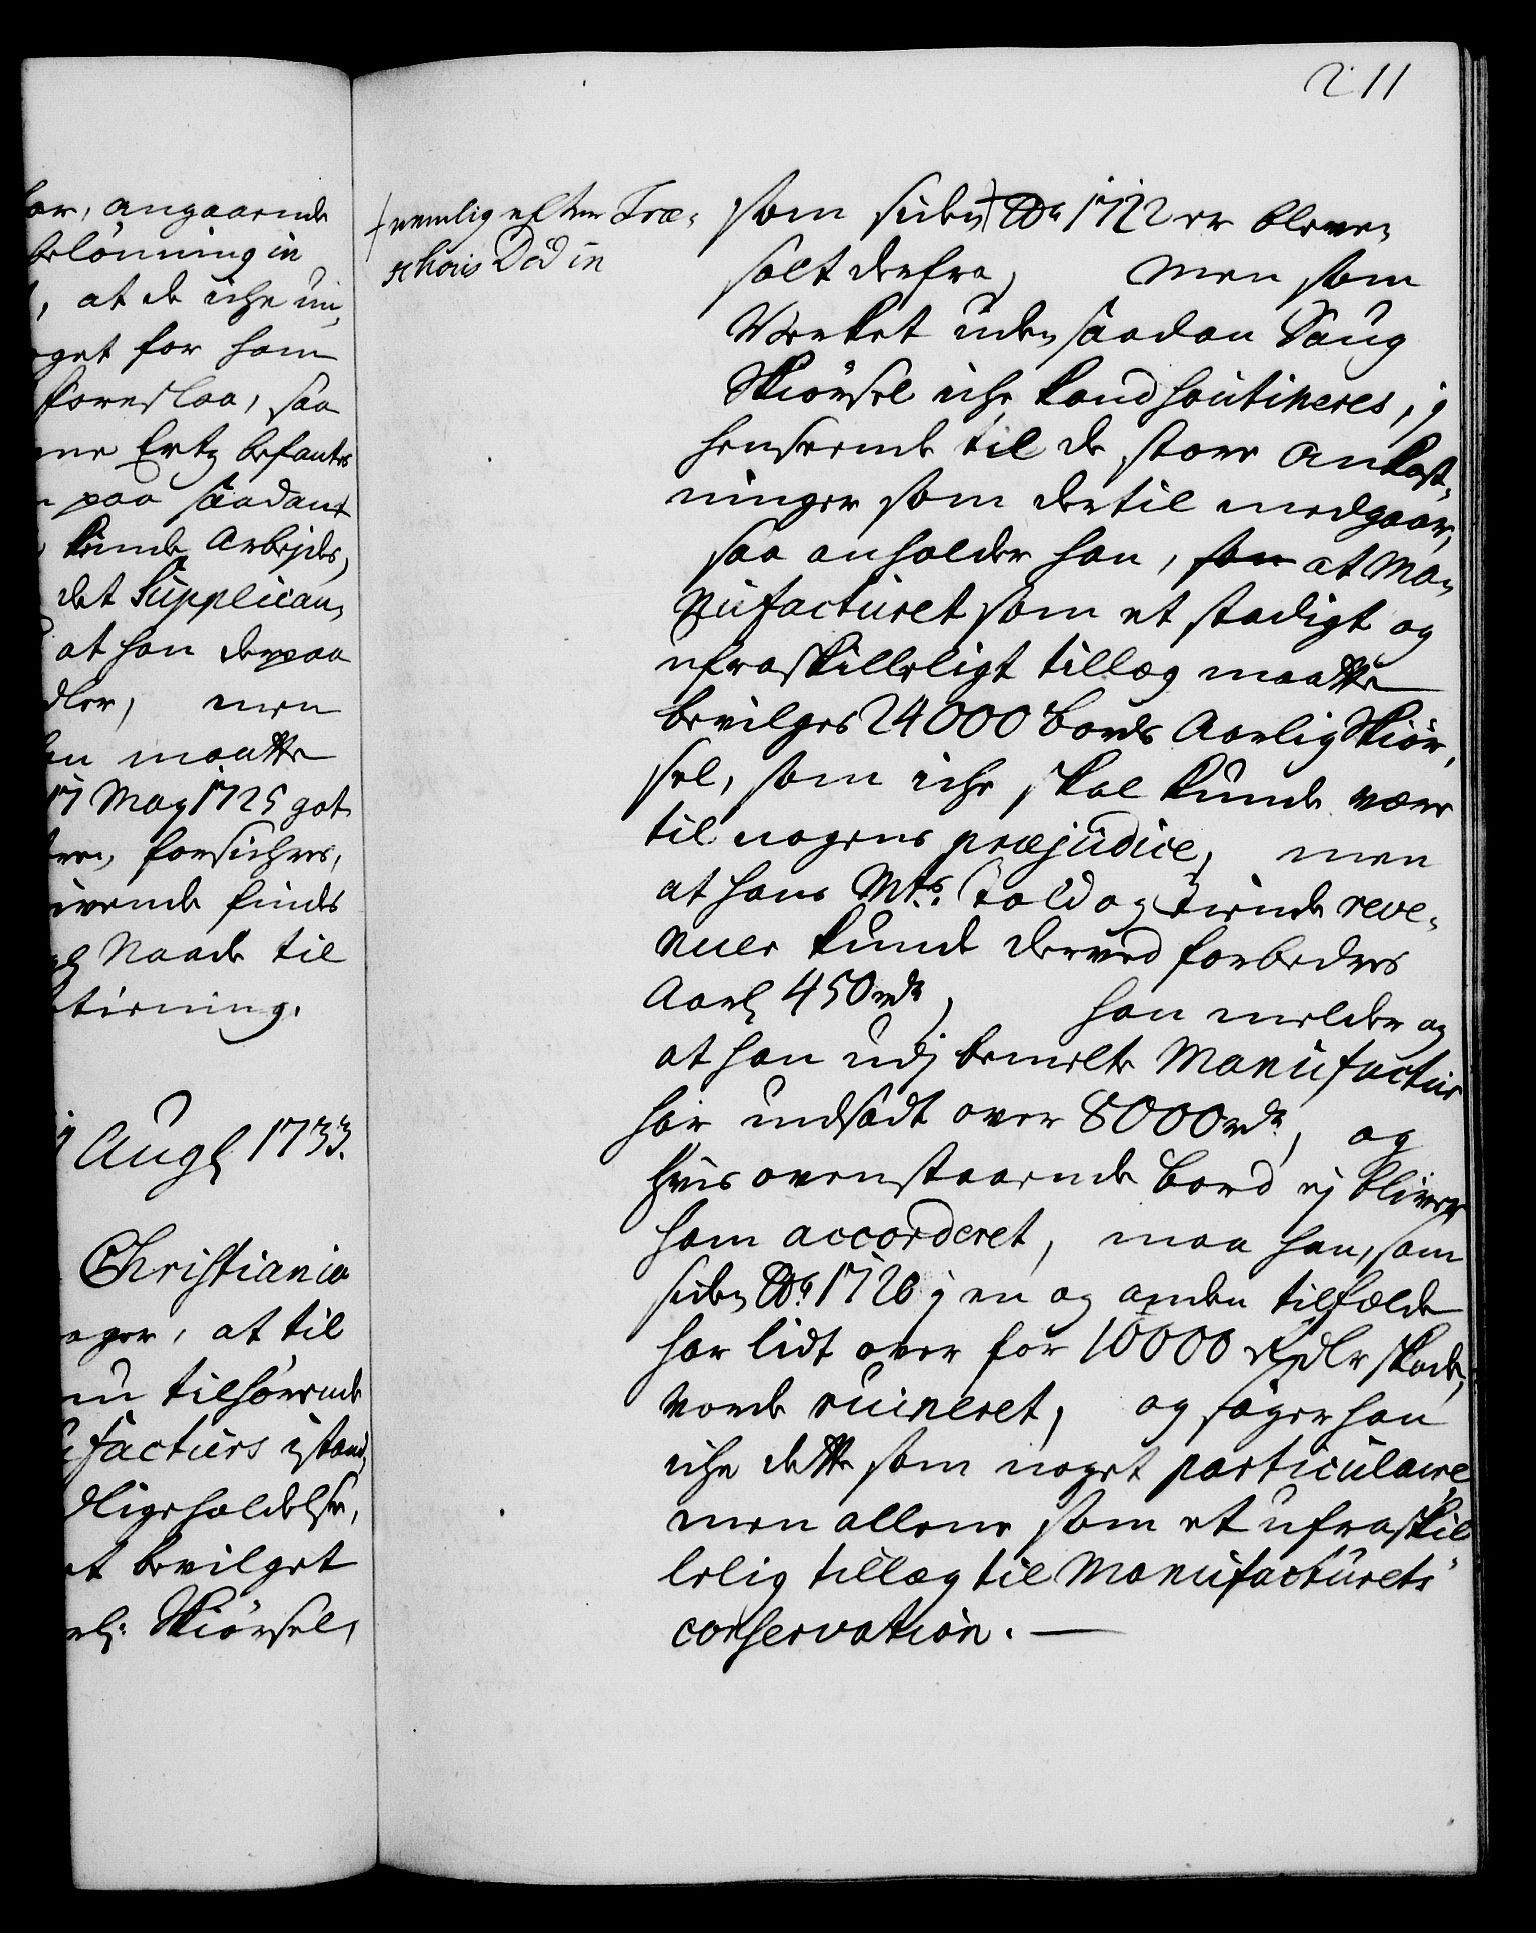 211
har, angaaende
belönning in
, at de iche un,
get for ham
foreslaa, saa
ne Ertz befantes
paa saadant
kunde Arbejdes,
det Supplican,
at han derpaa
dler, men
maatte
17 May 1725 got
forsichres,
ivende findes
Naade til
tirning.
Augl 1733.
Christiania
ager, at til
tilhörende
facturs istand,
dligeholdelse,
et bevilget
Skiörsel,
+ nemlig efter Træ-
schous Död in
som siden + Ao 1722 er bleven
solt derfra, men som
Verket uden saadan Saug
Skiörsel iche kand soutineres, i
henseende til de store Ankost,
ninger som dertil medgaar,
saa anholder han, som at Ma-
nufacturet som et stadigt og
ufraskilleligt tillæg maatte
bevilges 24000 bords Aarlig Skiör,
sel, som iche skal kunde være
til nogens præjudice, men
at hans Mts. Told og Tiende reve-
nuer kunde derved forbedres
Aarl 450 rdr, han melder og
at han udj bemelte Manufactur
har indsadt over 8000 rdr, og
hvis ovenstaaende bord ej bliver
ham accorderet, maa han, som
siden Ao. 1726 j en og anden tilfælde
har lidt over for 10000 Rdlr skade,
vorde ruineret, og söger han
iche dette som noget particulaire
men allene som et ufraskil
lelig tillæg til Manufacturets
conservation. —